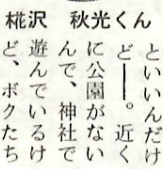 椛沢　秋光くん
といいんだけ
ど――。近く
に公園がない
んで、神社で
遊んでいるけ
ど、ボクたち